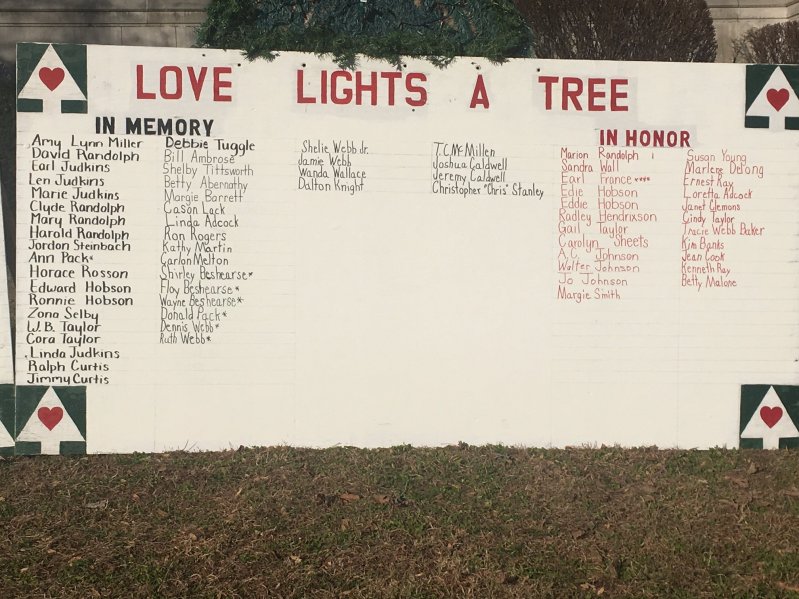 LOVE LIGHTS A TREE
IN MEMORY
Amy Lynn Miller
David Randolph
Earl Judkins
Len Judkins
Marie Judkins
Clyde Randolph
Mary Randolph
Harold Randolph
Jordon Steinbach
Ann Pack*
Horace Rosson
Edward Hobson
Ronnie Hobson
Zona Selby
W.B. Taylor
Cora Taylor
Linda Judkins
Ralph Curtis
Jimmy Curtis
Debbie Tuggle
Bill Ambrose
Shelby Tittsworth
Betty Abernathy
Margie Barrett
Cason Lack
Linda Adcock
Ron Rogers
Kathy Martin
Carlon Melton
Shirley Beshearse*
Floy Beshearse*
Wayne Beshearse*
Donald Pack*
Dennis Webb*
Ruth Webb*
Shelie Webb Jr.
Jamie Webb
Wanda Wallace
Dalton Knight
T.C. McMillen
Joshua Caldwell
Jeremy Caldwell
Christopher "Chris" Stanley
IN HONOR
Marion Randolph
Sandra Wall
Earl France ****
Edie Hobson
Eddie Hobson
Radley Hendrixson
Gail Taylor
Carolyn Sheets
A.C. Johnson
Walter Johnson
Jo Johnson
Margie Smith
Susan Young
Marlene DeJong
Ernest Ray
Loretta Adcock
Janet Clemons
Cindy Taylor
Tracie Webb Baker
Kim Banks
Jean Cook
Kenneth Ray
Betty Malone